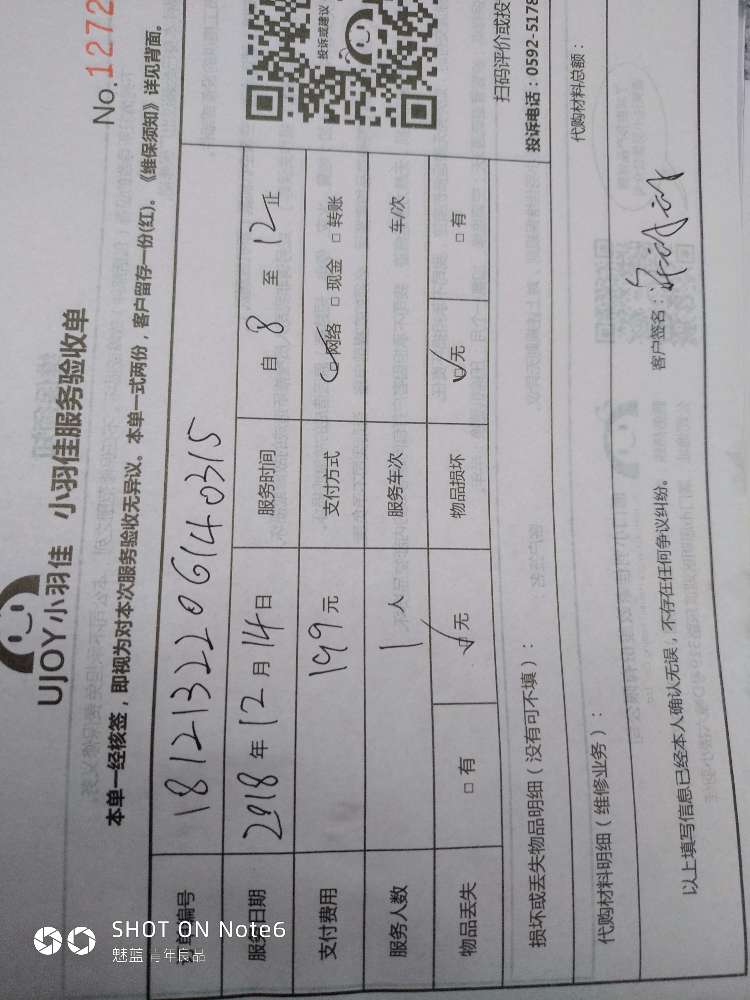 UJOY小羽佳 小羽佳服务验收单
No.1272
本单一经核签，即视为对本次服务验收无异议。本单一式两份，客户留存一份(红)。《维保须知》详见背面。
订单编号 181213220614 0315
服务日期 2018 年 12 月 14 日 服务时间 自 8 至 12 止
支付费用 199 元 支付方式 ☑网络 □现金 □转账
服务人数 1 人 服务车次 车/次
物品丢失 □有 ☑无 物品损坏 ☑无 □有
投诉或建议
扫码评价或投
投诉电话：0592-5178
损坏或丢失物品明细（没有可不填）：
代购材料明细（维修业务）： 代购材料总额：
以上填写信息已经本人确认无误，不存在任何争议纠纷。 客户签名：
SHOT ON Note6
魅蓝 青年良品